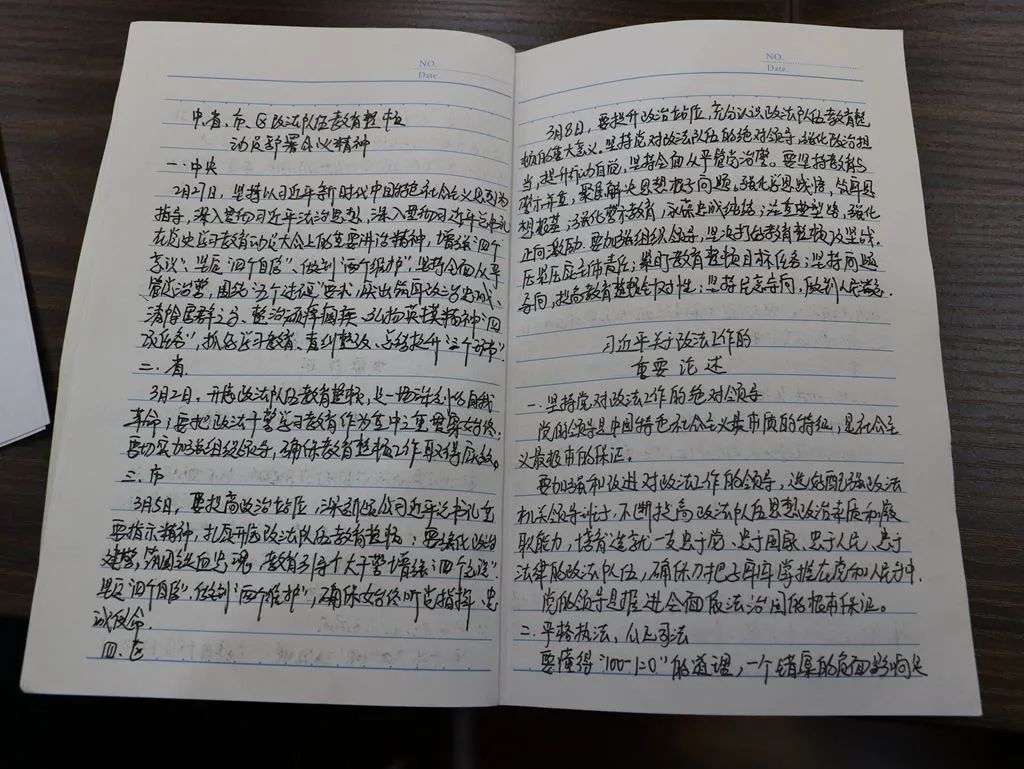 NO.
Date.
中、省、市、区政法队伍教育整顿
动员部署会议精神
一、中央
2月27日，坚持以习近平新时代中国特色社会主义思想为
指导，深入贯彻习近平法治思想，深入贯彻习近平总书记
在党史学习教育动员大会上的重要讲话精神，增强"四个
意识"、坚定"四个自信"、做到"两个维护"，坚持全面从严
管党治警，围绕"五个过硬"要求，突出筑牢政治忠诚、
清除害群之马、整治顽瘴痼疾、弘扬英模精神"四
项任务"，抓好学习教育、查纠整改、总结提升"三个环节"
二、省
3月2日，开展政法队伍教育整顿，是一场深刻的自我
革命，要把政法干警学习教育作为重中之重贯穿始终，
要切实加强组织领导，确保教育整顿工作取得实效。
三、市
3月5日，要提高政治站位，深刻领会习近平总书记重
要指示精神，扎实开展政法队伍教育整顿；要强化政治
建警，筑固铁血警魂，教育引导广大干警增强"四个意识"
坚定"四个自信"、做到"两个维护"，确保始终听党指挥、忠
诚使命。
四、区
NO.
Date.
3月8日，要提升政治站位，充分认识政法队伍教育整
顿的重大意义。坚持党对政法队伍的绝对领导，强化政治担
当，提升行动自觉，坚持全面从严管党治警。要坚持教育与
警示并重，聚焦解决思想根子问题。强化学思践悟，筑牢思
想根基；强化警示教育，永葆忠诚纯洁；注重典型，强化
正向激励。要加强组织领导，坚决打好教育整顿攻坚战。
压紧压实主体责任；紧盯教育整顿目标任务；坚持问题
导向，提高教育整顿针对性；坚持民意导向，做到人民满意。
习近平关于政法工作的
重要论述
一、坚持党对政法工作的绝对领导
党的领导是中国特色社会主义最本质的特征，是社会主
义最根本的保证。
要加强和改进对政法工作的领导，选好配强政法
机关领导班子，不断提高政法队伍思想政治素质和履
职能力，培育造就一支忠于党、忠于国家、忠于人民、忠于
法律的政法队伍，确保刀把子牢牢掌握在党和人民手中。
党的领导是推进全面依法治国的根本保证。
二、严格执法、公正司法
要懂得"100-1=0"的道理，一个错案的负面影响足